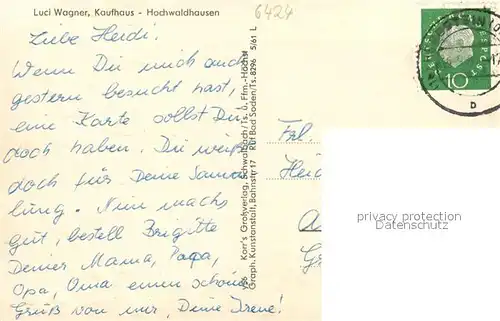 Luci Wagner, Kaufhaus - Hochwaldhausen
6424
Liebe Heidi!
Wenn Du mich auch
gestern besucht hast,
eine Karte sollst Du
doch haben. Du weißt
doch für Deine Samm
lung. Nun machs
gut, bestell Brigitte
Deiner Mama, Papa,
Opa, Oma einen schönen
Gruß von mir, Deine Irene!
Korr's Großverlag, Schwalbach/Ts. u. Ffm.-Höchst
Graph. Kunstanstalt, Bahnstr. 17 Ruf Bad Soden/Ts. 8296 5/61 L
10
b
Frl.
Heid
privacy protection
Datenschutz